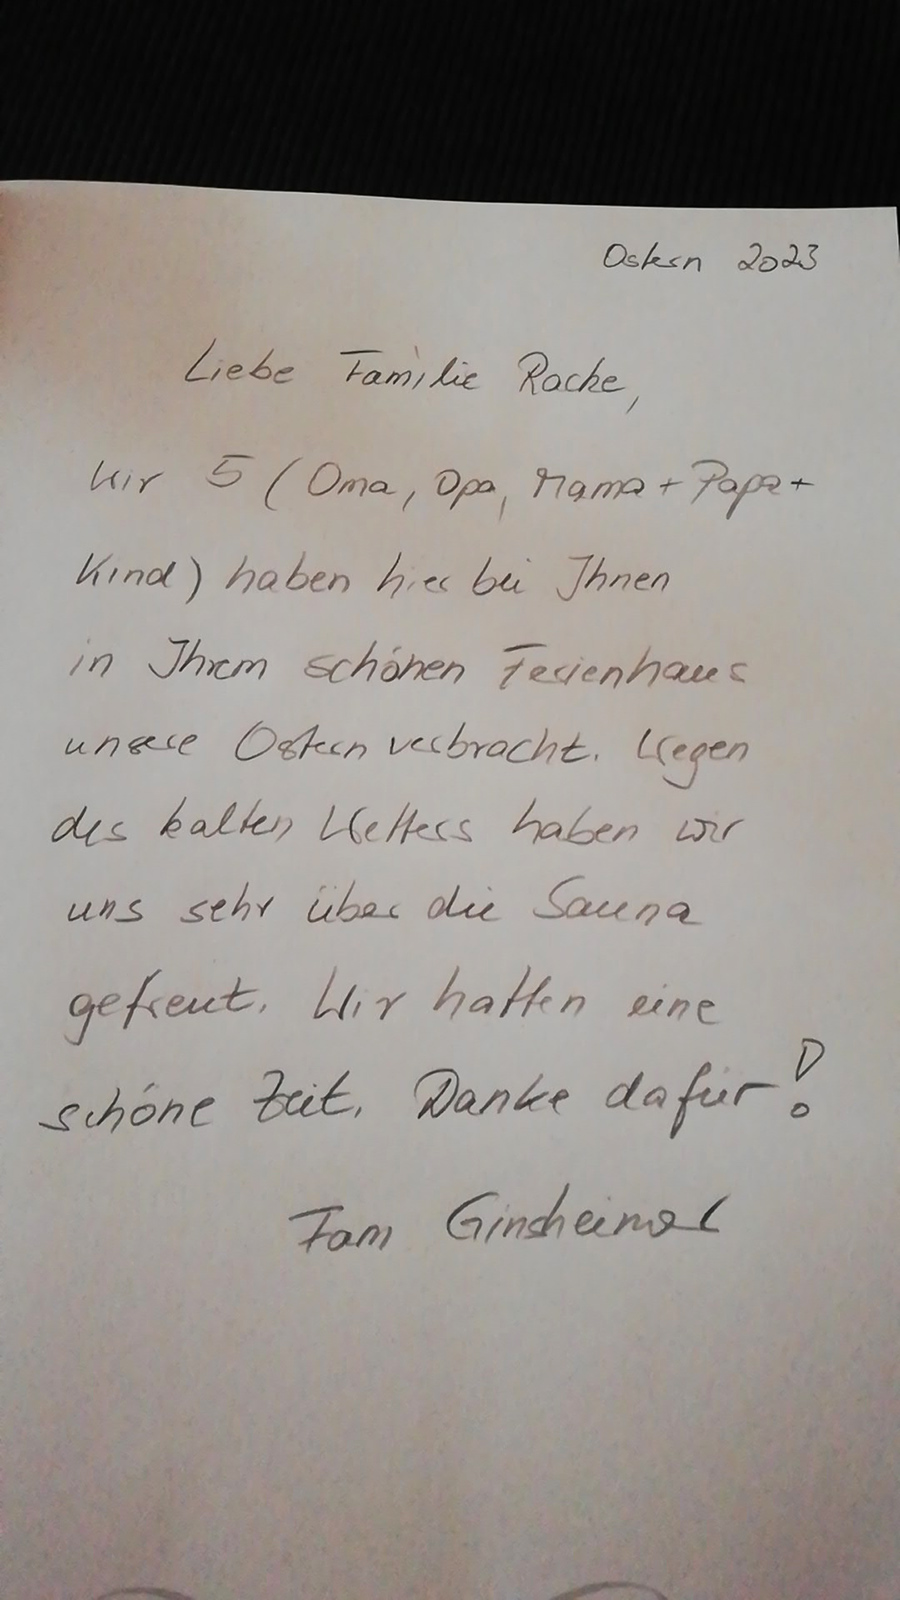 Ostern 2023
Liebe Familie Racke,
Wir 5 (Oma, Opa, Mama + Papa +
Kind) haben hier bei Ihnen
in Ihrem schönen Ferienhaus
unsere Ostern verbracht. Wegen
des kalten Wetters haben wir
uns sehr über die Sauna
gefreut. Wir hatten eine
schöne Zeit. Danke dafür!
Fam Ginsheimer